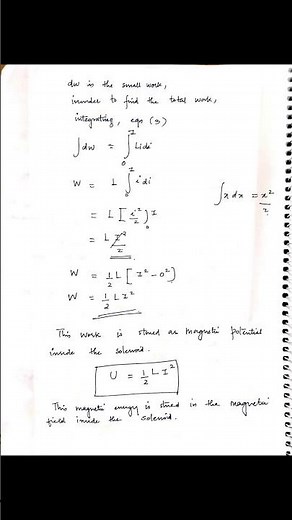 dw is the small work,
inorder to find the total work,
integrating, eqn (3)
∫dw = ∫₀ᴵ Lidi
W = L ∫₀ᴵ i di
∫x dx = x²/2
= L [i²/2]₀ I
= L I²/2
W = 1/2 L [I² - 0²]
W = 1/2 L I²
This work is stored as magnetic potential
inside the solenoid.
U = 1/2 L I²
This magnetic energy is stored in the magnetic
field inside the solenoid.